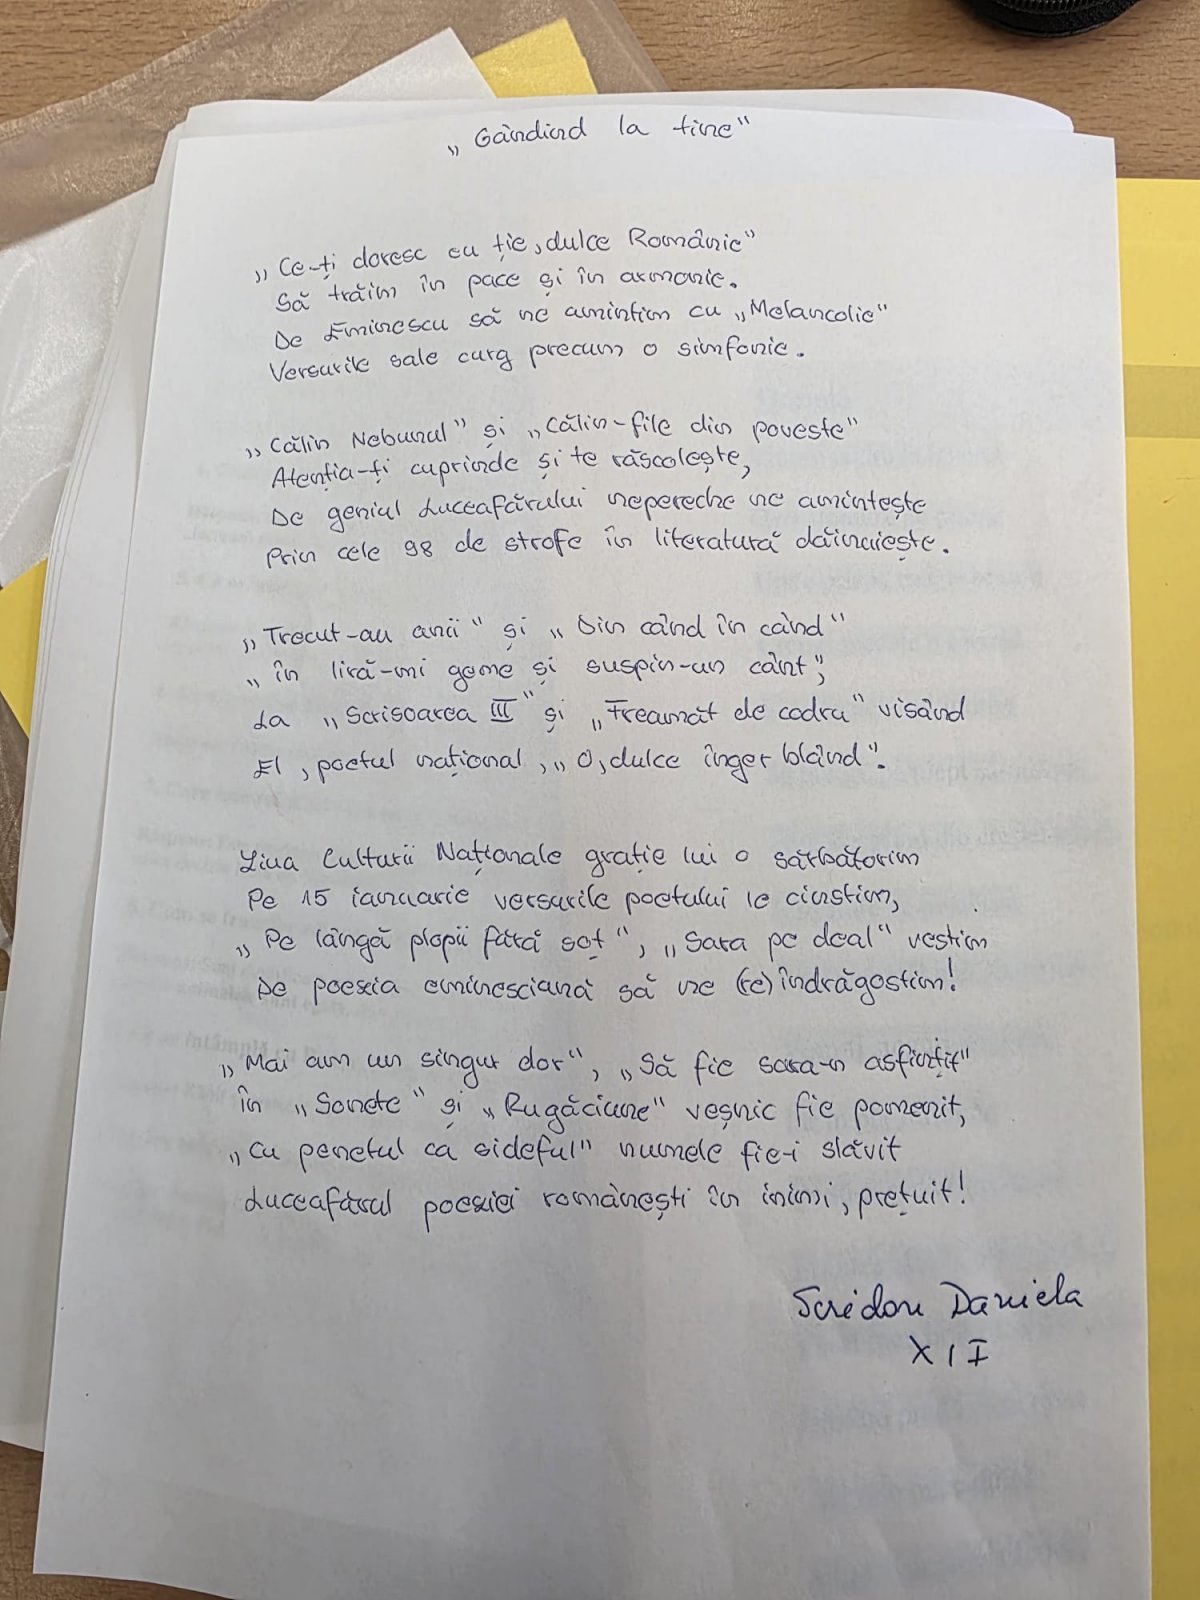 „Gândind la tine"
„Ce-ți doresc eu ție, dulce Românie"
Să trăim în pace și în armonie.
De Eminescu să ne amintim cu „Melancolie"
Versurile sale curg precum o simfonie.
„Călin Nebunul" și „Călin-file din poveste"
Atenția-ți cuprinde și te răscolește,
De geniul Luceafărului nepereche ne amintește
Prin cele 98 de strofe în literatură dăinuiește.
„Trecut-au anii" și „Din când în când"
„în liră-mi geme și suspin-un cânt",
La „Scrisoarea III" și „Freamăt de codru" visând
El, poetul național, „O, dulce înger blând".
Ziua Culturii Naționale grație lui o sărbătorim
Pe 15 ianuarie versurile poetului le cinstim,
„Pe lângă plopii fără soț", „Sara pe deal" vestim
De poezia eminesciană să ne (re)îndrăgostim!
„Mai am un singur dor", „Să fie sara-n asfințit"
În „Sonete" și „Rugăciune" veșnic fie pomenit,
„Cu penetul ca sideful" numele fie-i slăvit
Luceafărul poeziei românești în inimi, prețuit!
Scridon Daniela
XII